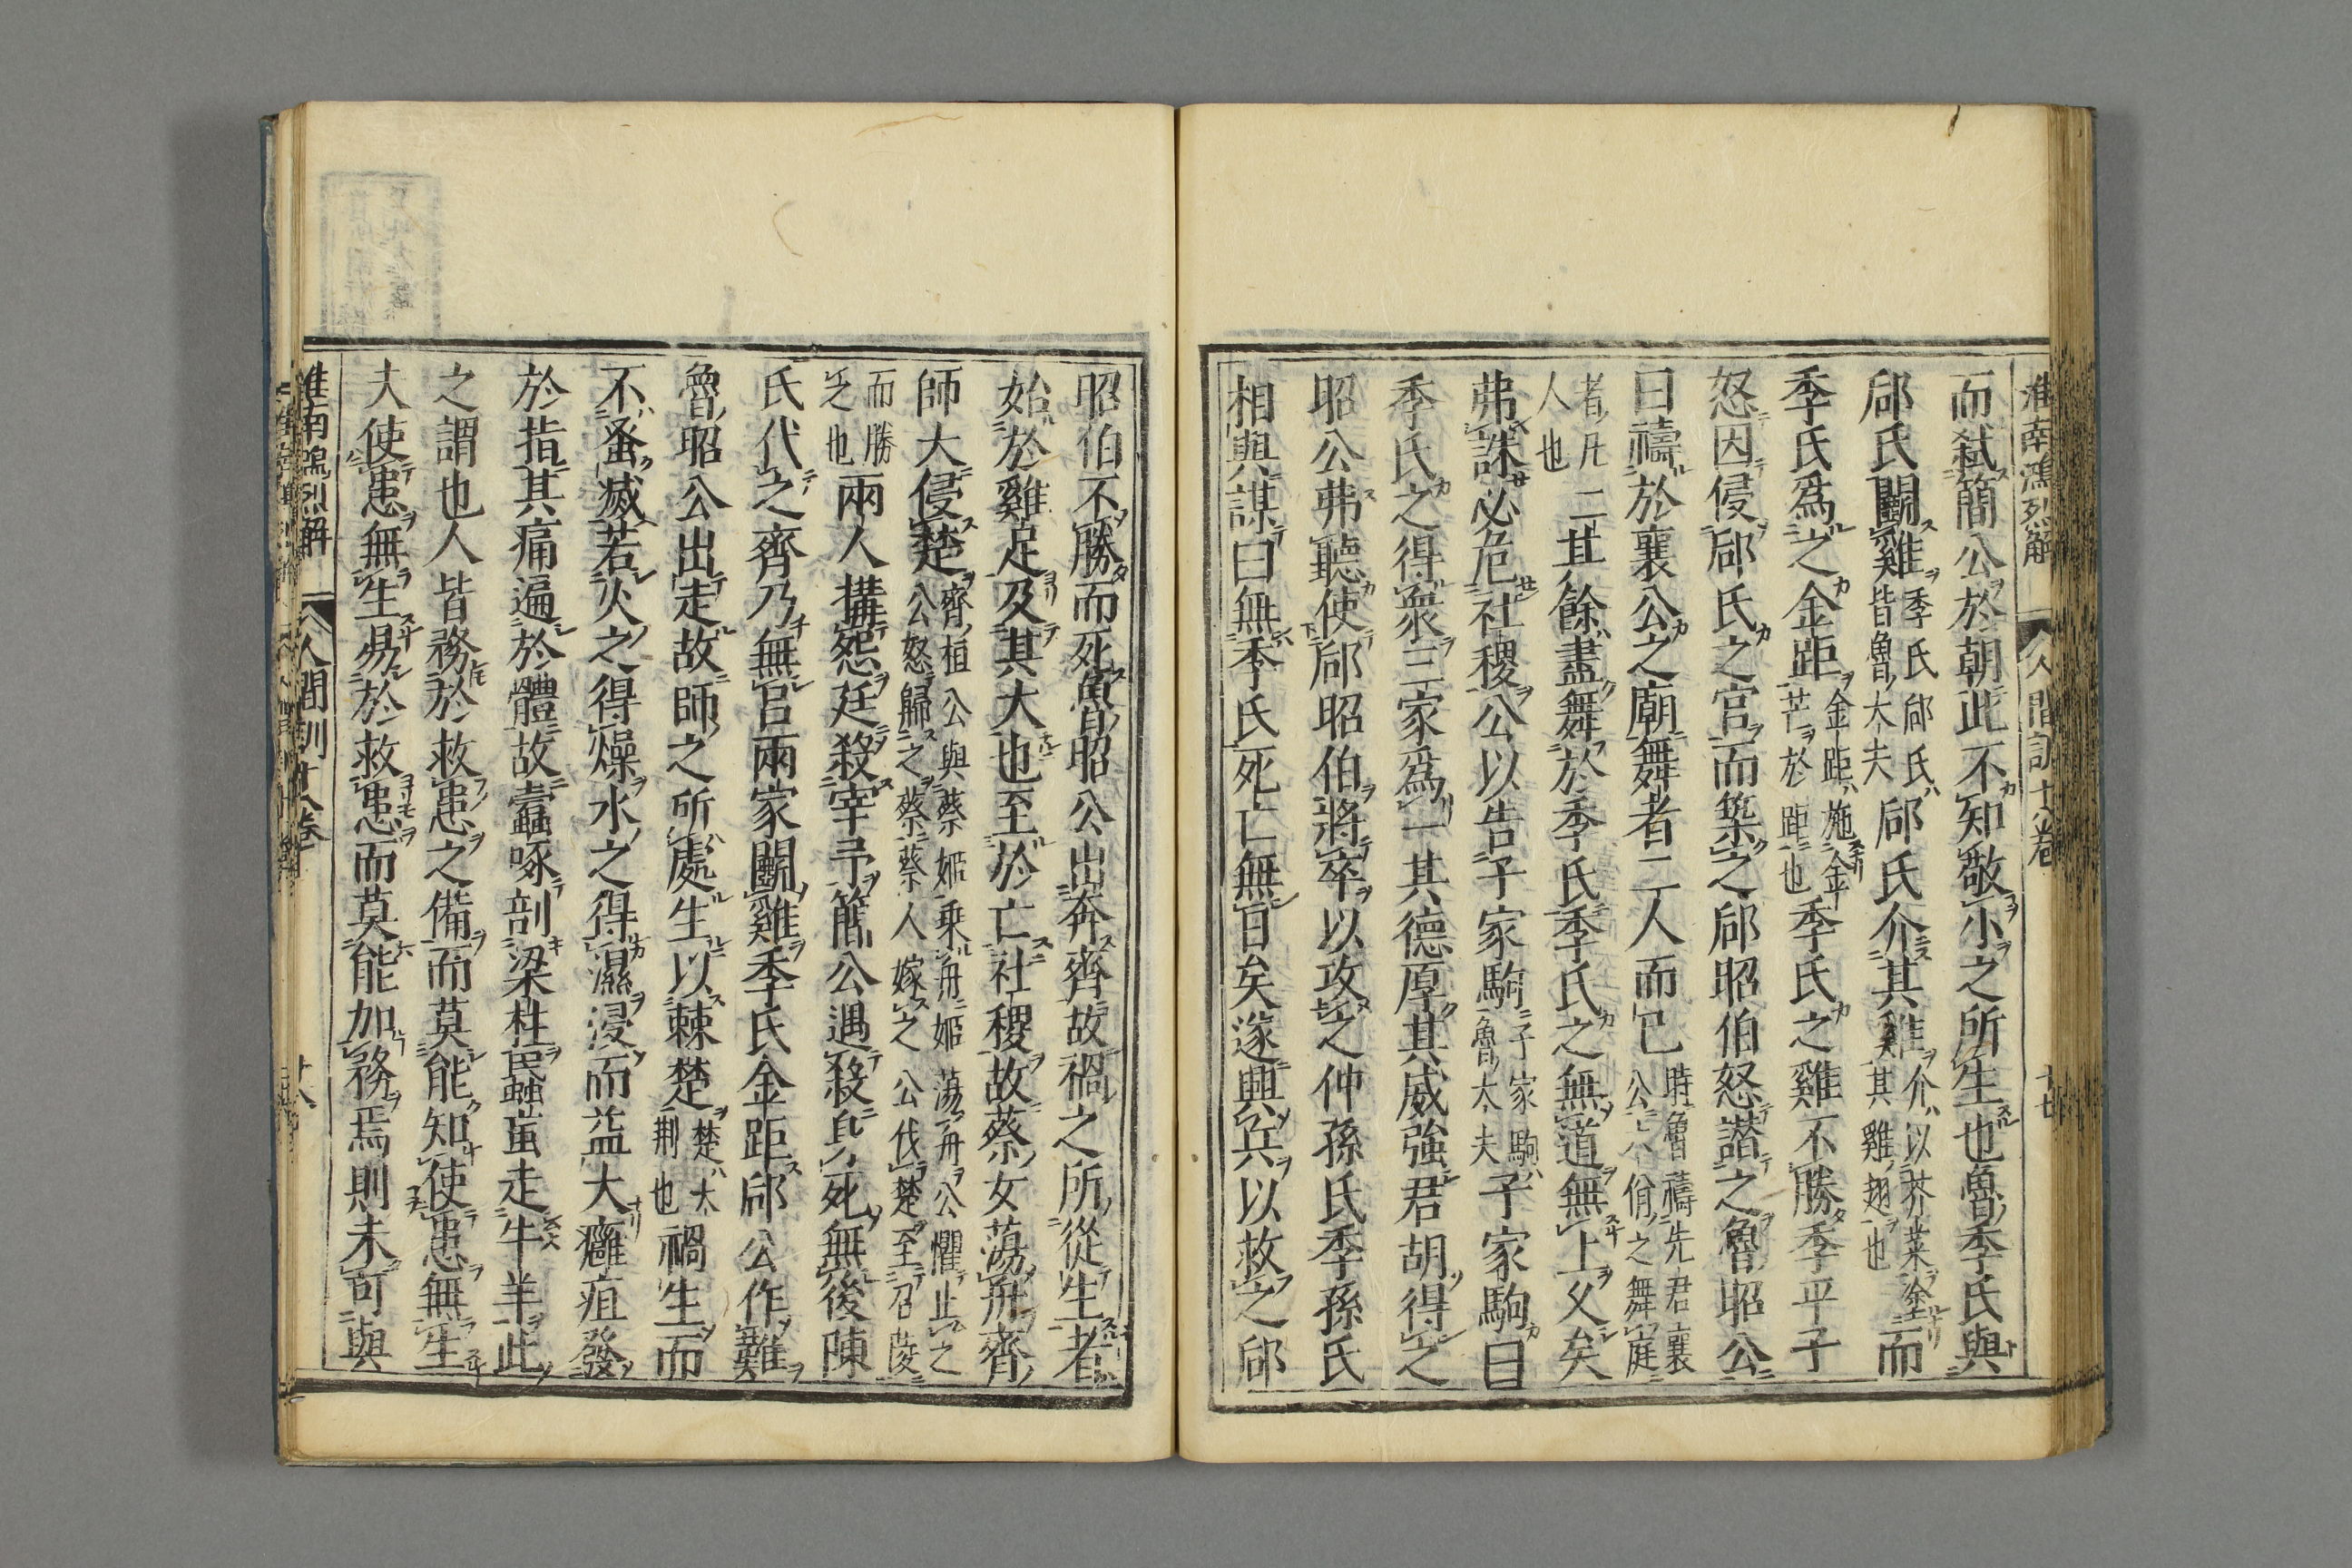 淮南鴻烈解 人間訓十八卷
而弑簡公於朝此不知敬小之所生也魯季氏與
郈氏鬭雞季氏郈氏皆魯大夫郈氏介其雞介以芥菜塗其雞翅也而
季氏爲之金距金距施金芒於距也季氏之雞不勝季平子
怒因侵郈氏之宫而築之郈昭伯怒譖之魯昭公
曰禱於襄公之廟舞者二人而已時魯禱先君襄公六佾之舞庭
者凡二人也其餘盡舞於季氏季氏之無道無上久矣
弗誅必危社稷公以告子家駒子家駒魯大夫子家駒曰
季氏之得衆三家爲一其德厚其威強君胡得之
昭公弗聽使郈昭伯將卒以攻之仲孫氏季孫氏
相與謀曰無季氏死亡無日矣遂興兵以救之郈
昭伯不勝而死魯昭公出奔齊故禍之所從生者
始於雞足及其大也至於亡社稷故蔡女蕩舟齊
師大侵楚齊植公與蔡姬乗舟姬蕩舟公懼止之公怒歸之蔡蔡人嫁之公伐楚至召陵
而勝之也兩人搆怨廷殺宰予簡公遇殺身死無後陳
氏代之齊乃無吕兩家鬭雞季氏金距郈公作難
魯昭公出走故師之所處生以棘楚楚大荆也禍生而
不蚤滅若火之得燥水之得濕浸而益大癰疽發
於指其痛遍於體故蠹啄剖梁柱蟁䖟走牛羊此
之謂也人皆務於救患之備而莫能知使患無生
夫使患無生易於救患而莫能加務焉則未可與
淮南鴻烈解 人間訓十八卷 廿八